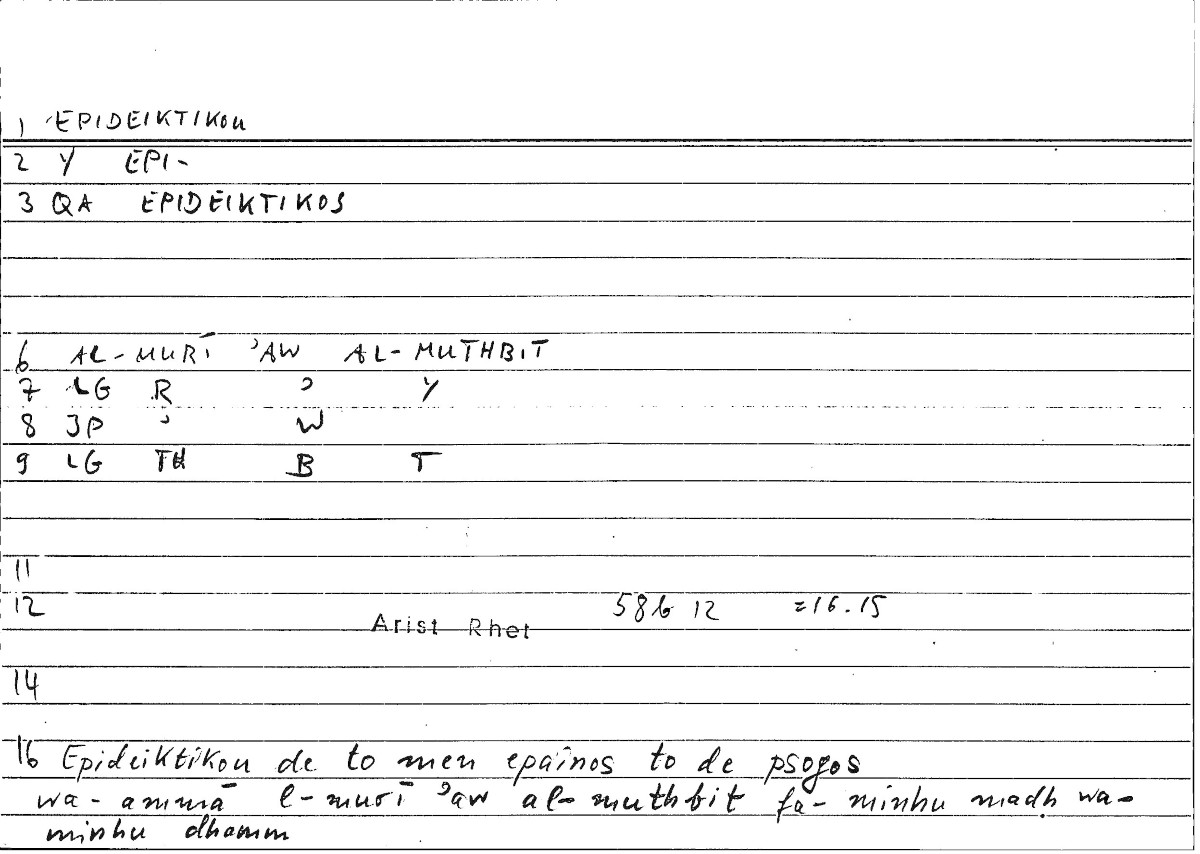 1 EPIDEIKTIKOU
2 Y EPI-
3 QA EPIDEIKTIKOS
6 AL-MURĪ ʾAW AL-MUTHBIT
7 LG R ʾ Y
8 JP ʾ W
9 LG TH B T
11
12 58b 12 =16.15
Arist Rhet
14
16 Epideiktikou de to men epainos to de psogos
wa-ammā l-murī ʾaw al-muthbit fa-minhu madḥ wa-
minhu dhamm